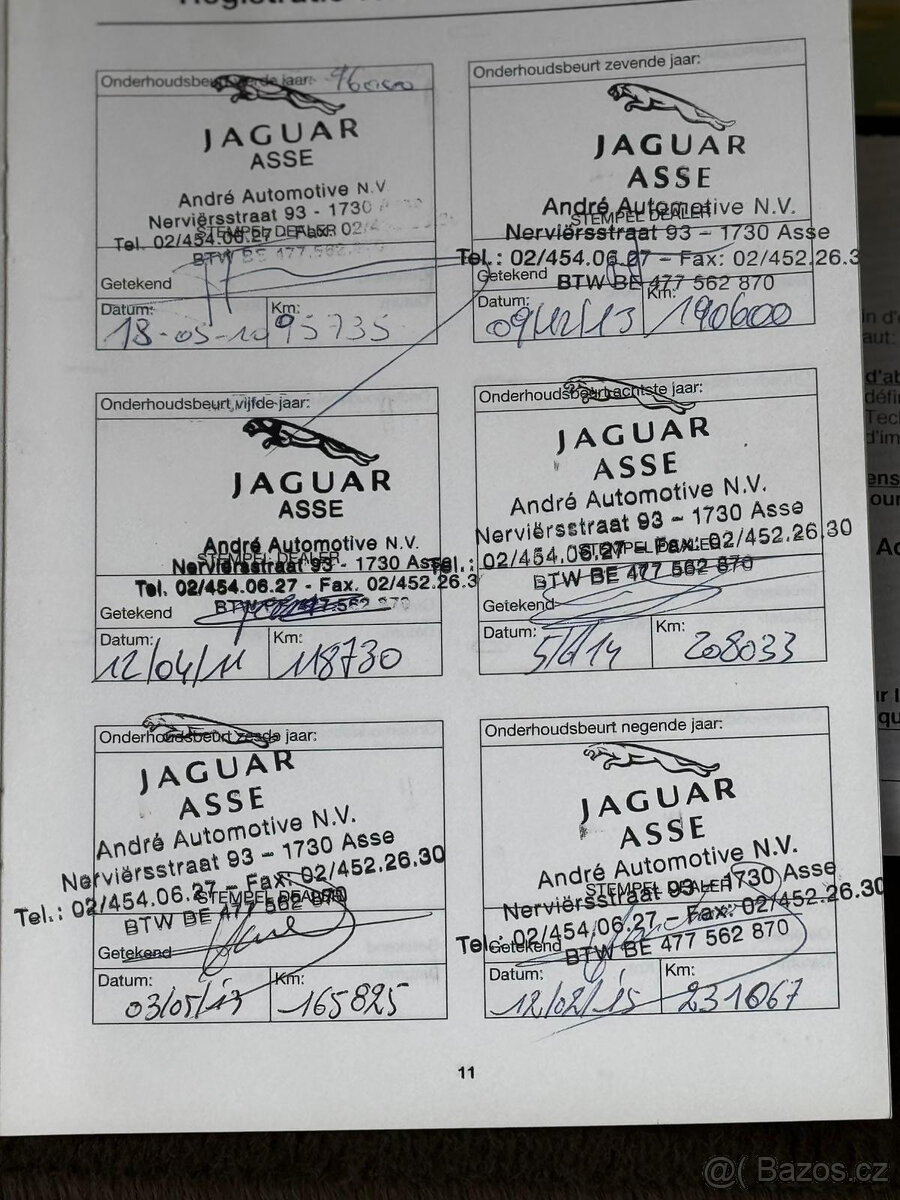 Onderhoudsbeurt vierde jaar: 96000
JAGUAR
ASSE
André Automotive N.V.
Nerviërsstraat 93 - 1730
STEMPEL DEALER
Tel. 02/454.06.27 - Fax. 02/4
BTW BE 477.562.
Getekend
Datum: Km:
18-05-10 95735
Onderhoudsbeurt vijfde jaar:
JAGUAR
ASSE
André Automotive N.V.
STEMPEL DEALER
Nerviërsstraat 93 - 1730 Asse
Tel. 02/454.06.27 - Fax. 02/452.26.3
BTW BE 477 562 870
Getekend
Datum: Km:
12/04/11 118730
Onderhoudsbeurt zesde jaar:
JAGUAR
ASSE
André Automotive N.V.
Nerviërsstraat 93 – 1730 Asse
Tel.: 02/454.06.27 – Fax: 02/452.26.30
STEMPEL DEALER
BTW BE 477 562 870
Getekend
Datum: Km:
03/05/13 165825
Onderhoudsbeurt zevende jaar:
JAGUAR
ASSE
André Automotive N.V.
STEMPEL DEALER
Nerviërsstraat 93 – 1730 Asse
Tel.: 02/454.06.27 – Fax: 02/452.26.3
Getekend
BTW BE 477 562 870
Datum: Km:
09/12/13 190600
Onderhoudsbeurt achtste jaar:
JAGUAR
ASSE
André Automotive N.V.
Nerviërsstraat 93 – 1730 Asse
STEMPEL DEALER
Tel.: 02/454.06.27 – Fax: 02/452.26.30
BTW BE 477 562 870
Getekend
Datum: Km:
14 208033
Onderhoudsbeurt negende jaar:
JAGUAR
ASSE
André Automotive N.V.
STEMPEL DEALER
Nerviërsstraat 93 – 1730 Asse
Tel.: 02/454.06.27 – Fax: 02/452.26.30
Getekend
BTW BE 477 562 870
Datum: Km:
12/02/15 231067
11
@( Bazos.cz